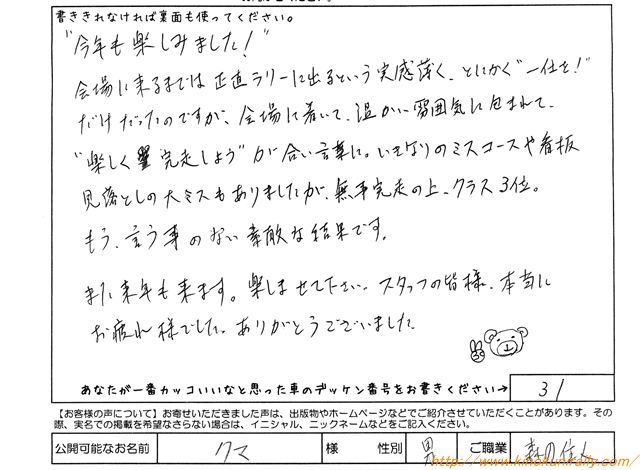 書ききれなければ裏面も使ってください。
"今年も楽しみました!"
会場に来るまでは正直ラリーに出るという実感薄く、とにかく"一仕を!"
だけだったのですが、会場に着いて、温かい雰囲気に包まれて、
"楽しく 完走しよう"が合い言葉に。いきなりのミスコースや看板
見落としの大ミスもありましたが、無事完走の上、クラス3位。
もう、言う事のない素敵な結果です。
また来年も来ます。楽しませて下さい。スタッフの皆様、本当に
お疲れ様でした。ありがとうございました。
あなたが一番カッコいいなと思った車のデッケン番号をお書きください→ 31
【お客様の声について】お寄せいただきました声は、出版物やホームページなどでご紹介させていただくことがあります。その
際、実名での掲載を希望なさらない場合は、イニシャル、ニックネームなどをご記入ください。
公開可能なお名前 クマ 様 性別 男 ご職業 森の住人